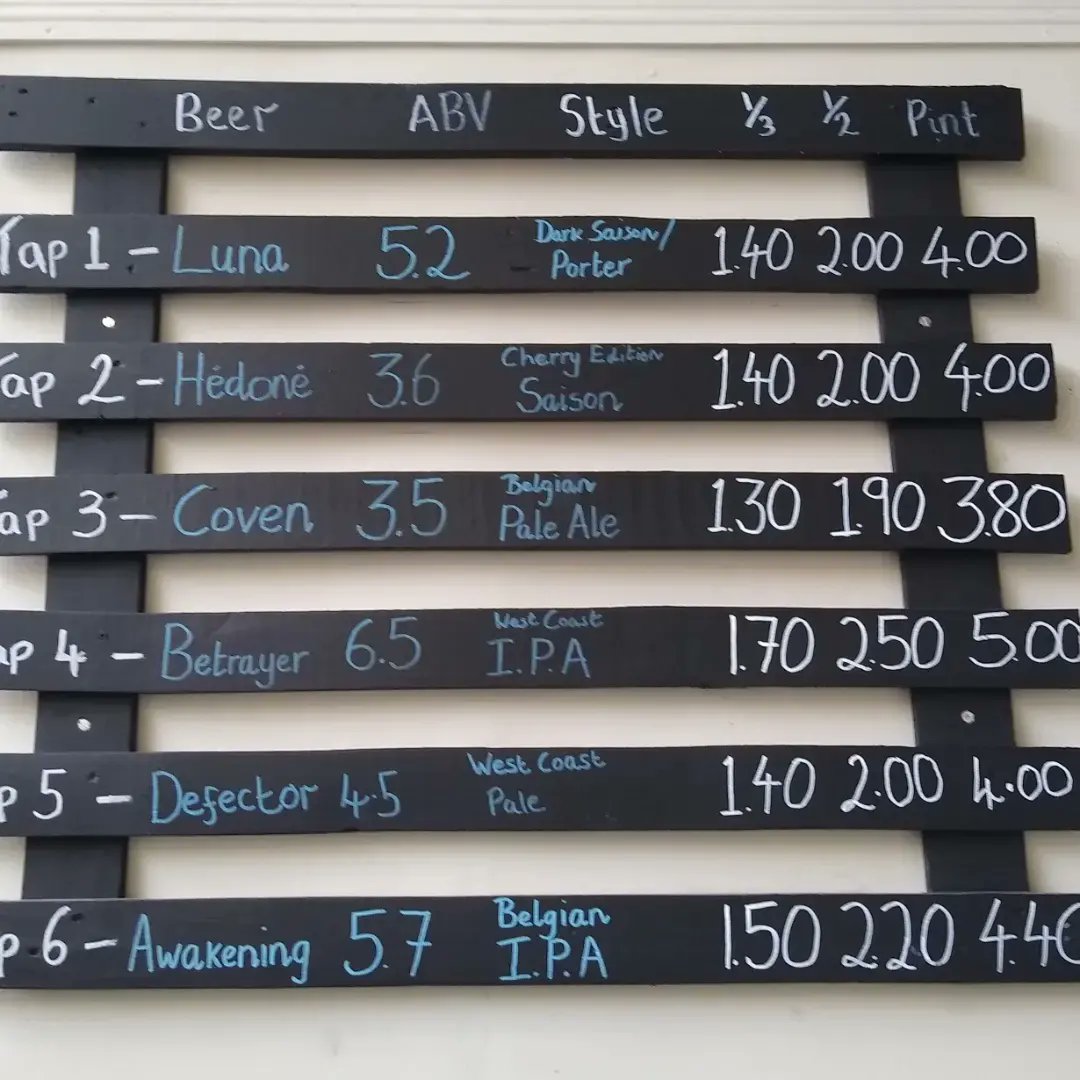 Beer ABV Style 1/3 1/2 Pint
Tap 1 - Luna 5.2 Dark Saison/ Porter 1.40 2.00 4.00
Tap 2 - Hédoné 3.6 Cherry Edition Saison 1.40 2.00 4.00
Tap 3 - Coven 3.5 Belgian Pale Ale 1.30 1.90 3.80
ap 4 - Betrayer 6.5 West Coast I.P.A 1.70 2.50 5.00
p 5 - Defector 4.5 West Coast Pale 1.40 2.00 4.00
p 6 - Awakening 5.7 Belgian I.P.A 1.50 2.20 4.40